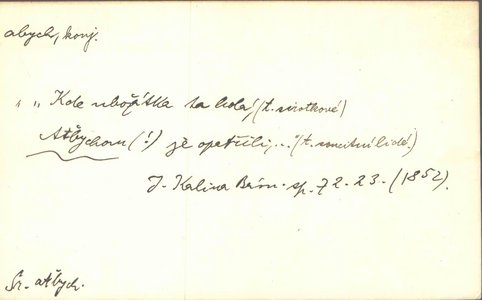 abych, konj.
„ „ Kde ubožátka ta lkdá, (t. sirotkové)
Ažbychom (!) je opatřili,..." (t. soucitní lidé.)
J. Kalina Básn. sp. 72. 23. (1852).
Sr. ažbych.